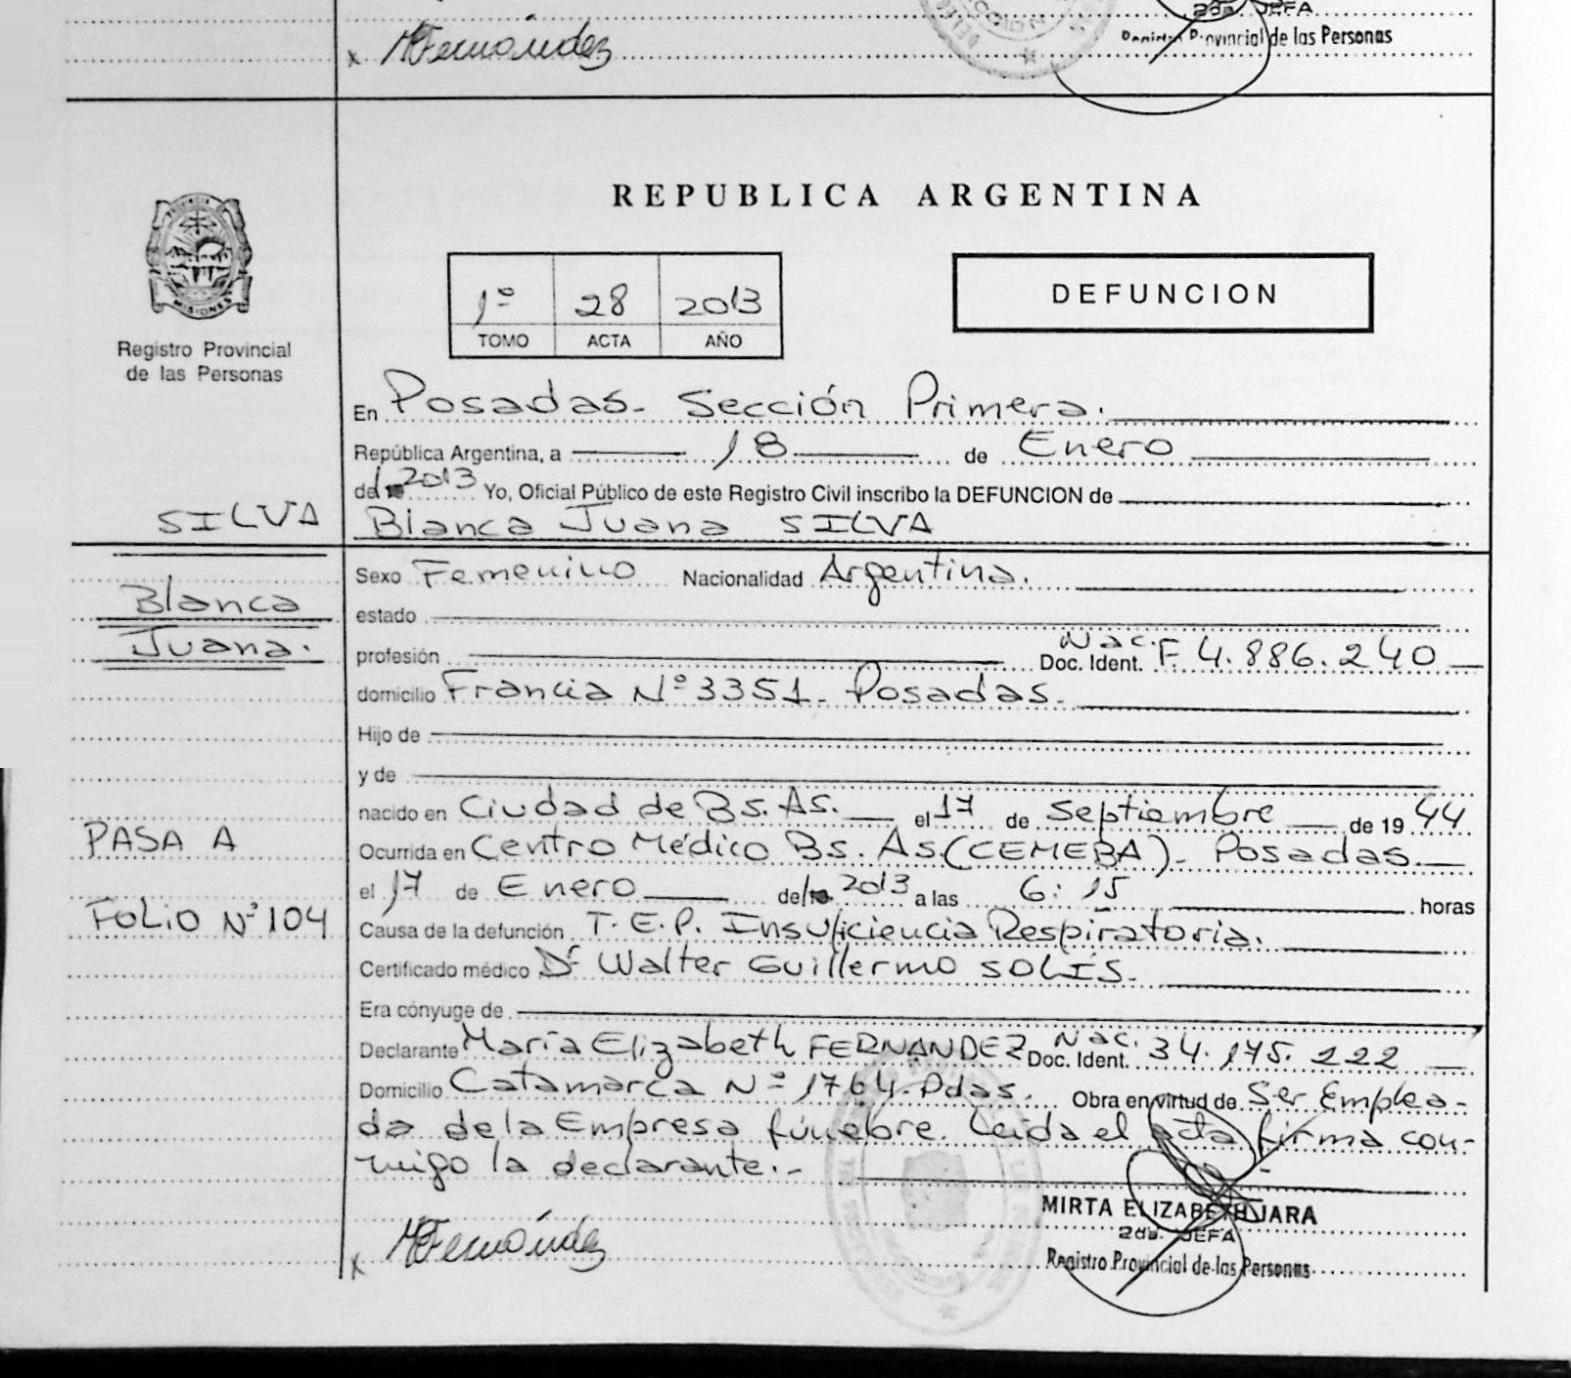 MFernández
2da. JEFA
Registro Provincial de las Personas
REPUBLICA ARGENTINA
1º 28 2013
TOMO ACTA AÑO
DEFUNCION
MISIONES
Registro Provincial
de las Personas
En Posadas- Sección Primera.
República Argentina, a 18 de Enero
del 2013 Yo, Oficial Público de este Registro Civil inscribo la DEFUNCION de
SILVA
Blanca Juana SILVA
Blanca
Juana.
Sexo Femenino Nacionalidad Argentina.
estado
profesión Nac. Doc. Ident. F. 4.886.240
domicilio Francia Nº 3351- Posadas.
Hijo de
y de
nacido en Ciudad de Bs. As. el 17 de Septiembre de 19 44
PASA A
Ocurrida en Centro Médico Bs. As (CEMEBA)- Posadas
el 17 de Enero del 2013 a las 6:15 horas
FOLIO Nº 104
Causa de la defunción T.E.P. Insuficiencia Respiratoria.
Certificado médico Dr Walter Guillermo SOLIS.
Era cónyuge de
Declarante María Elizabeth FERNANDEZ Nac. Doc. Ident. 34.175.222
Domicilio Catamarca Nº 1764- Pdas. Obra en virtud de Ser Emplea-
da de la Empresa fúnebre. Leida el acta firma con-
migo la declarante.-
MIRTA ELIZABETH JARA
2da. JEFA
Registro Provincial de las Personas
x MFernández